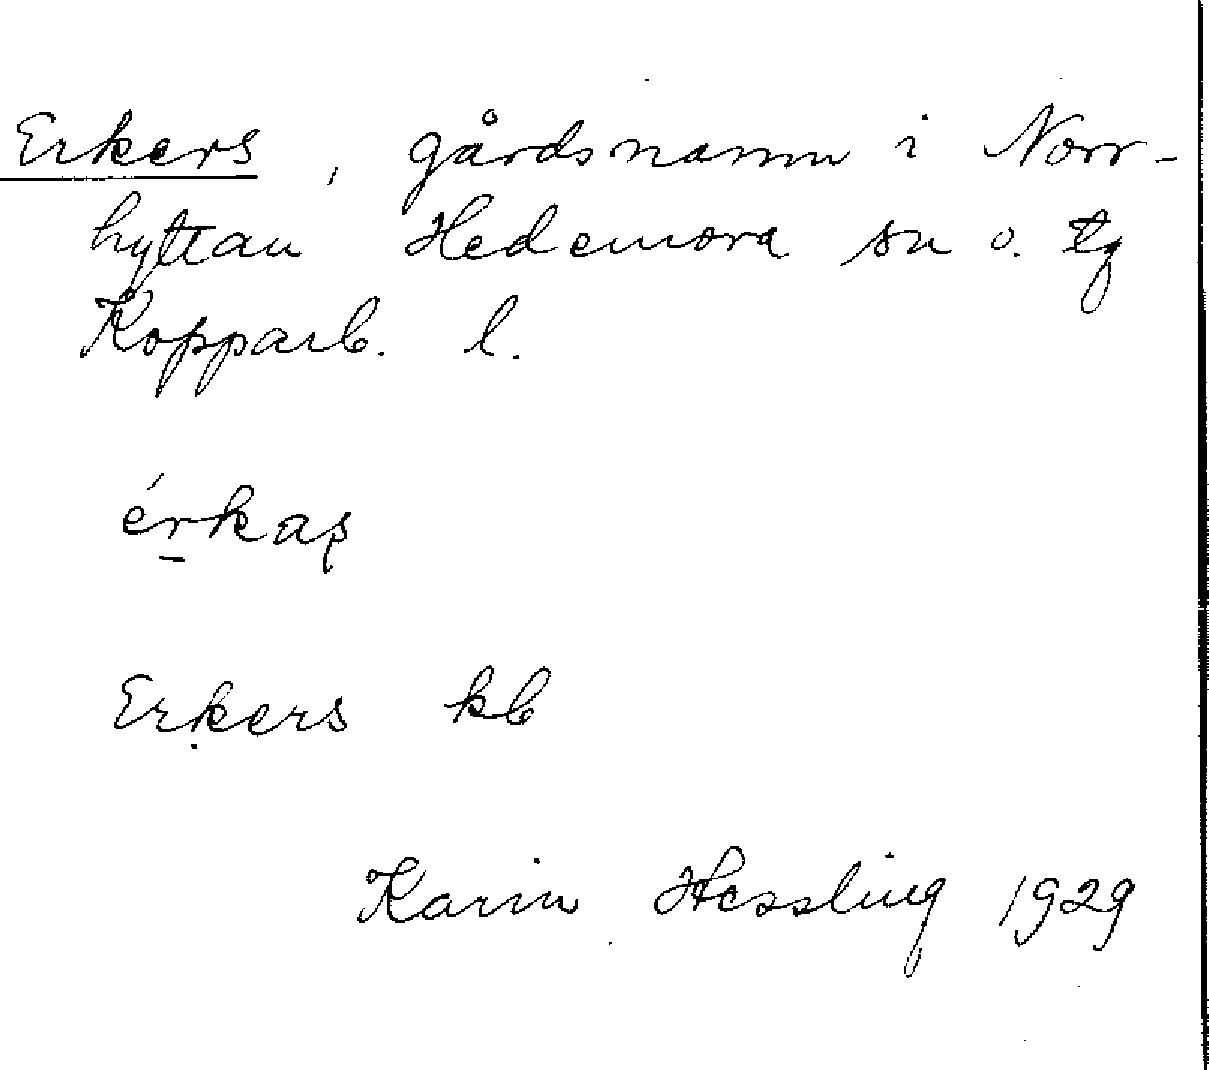 Erkers, gårdsnamn i Norr-
hyttan Hedemora sn o. tg
Kopparb. l.
érkaș
Erkers kb
Karin Hessling 1929